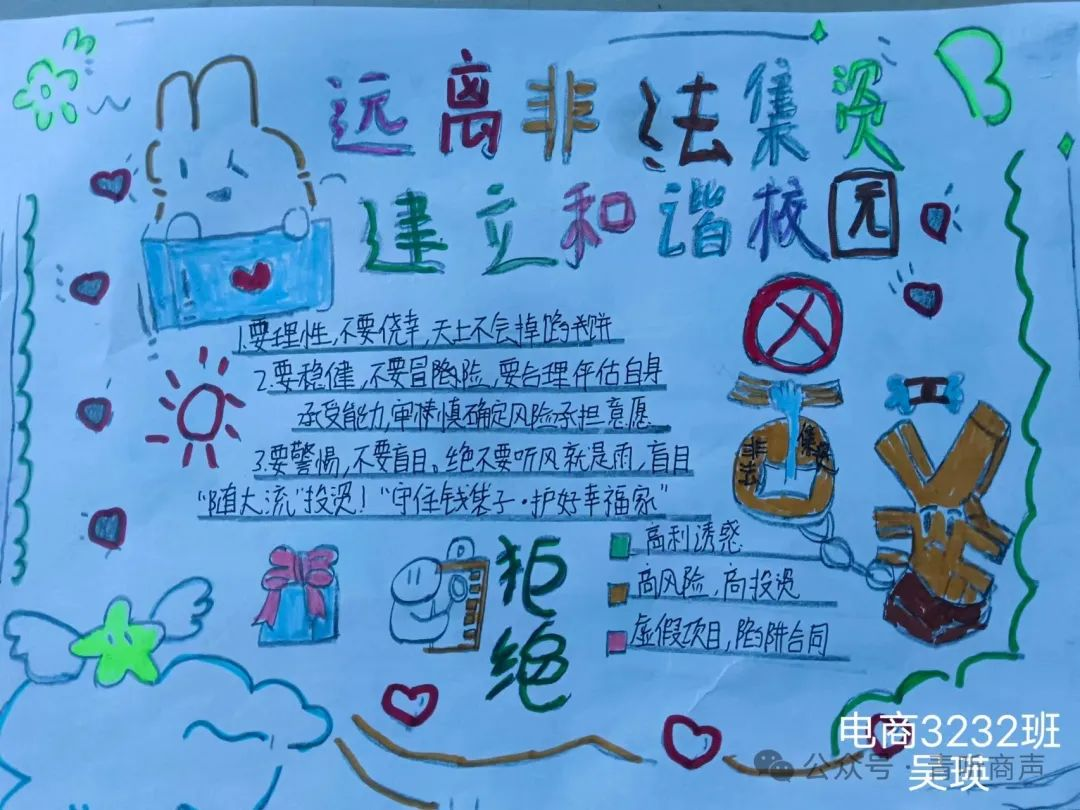 远离非法集资
建立和谐校园
1.要理性,不要侥幸,天上不会掉馅饼
2.要稳健,不要冒险,要合理评估自身
承受能力,审慎确定风险承担意愿
3.要警惕,不要盲目。绝不要听风就是雨,盲目
“随大流”投资!“守住钱袋子·护好幸福家”
非法
集资
拒绝
高利诱惑
高风险,高投资
虚假项目,陷阱合同
电商3232班
吴瑛
公众号·青
商声